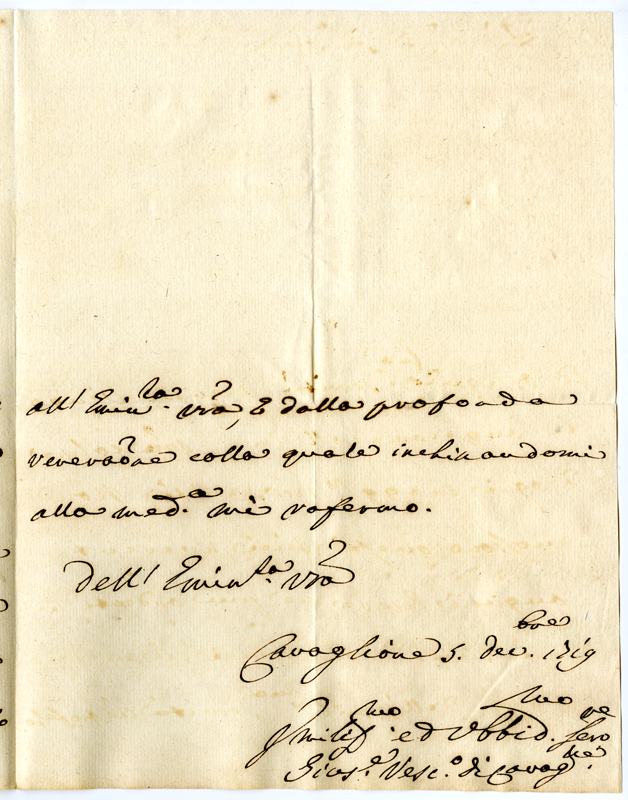 all' Emin.za vra, e dalla profonda
venera͠one colla quale inchinandomi
alla med.a mi rafermo.
Dell' Emin.za vra
Cavaglione 5. dec.bre 1719
Umilis.mo ed Obbid.mo serv.re
Gius.e Vesc.o di Cavag.ne